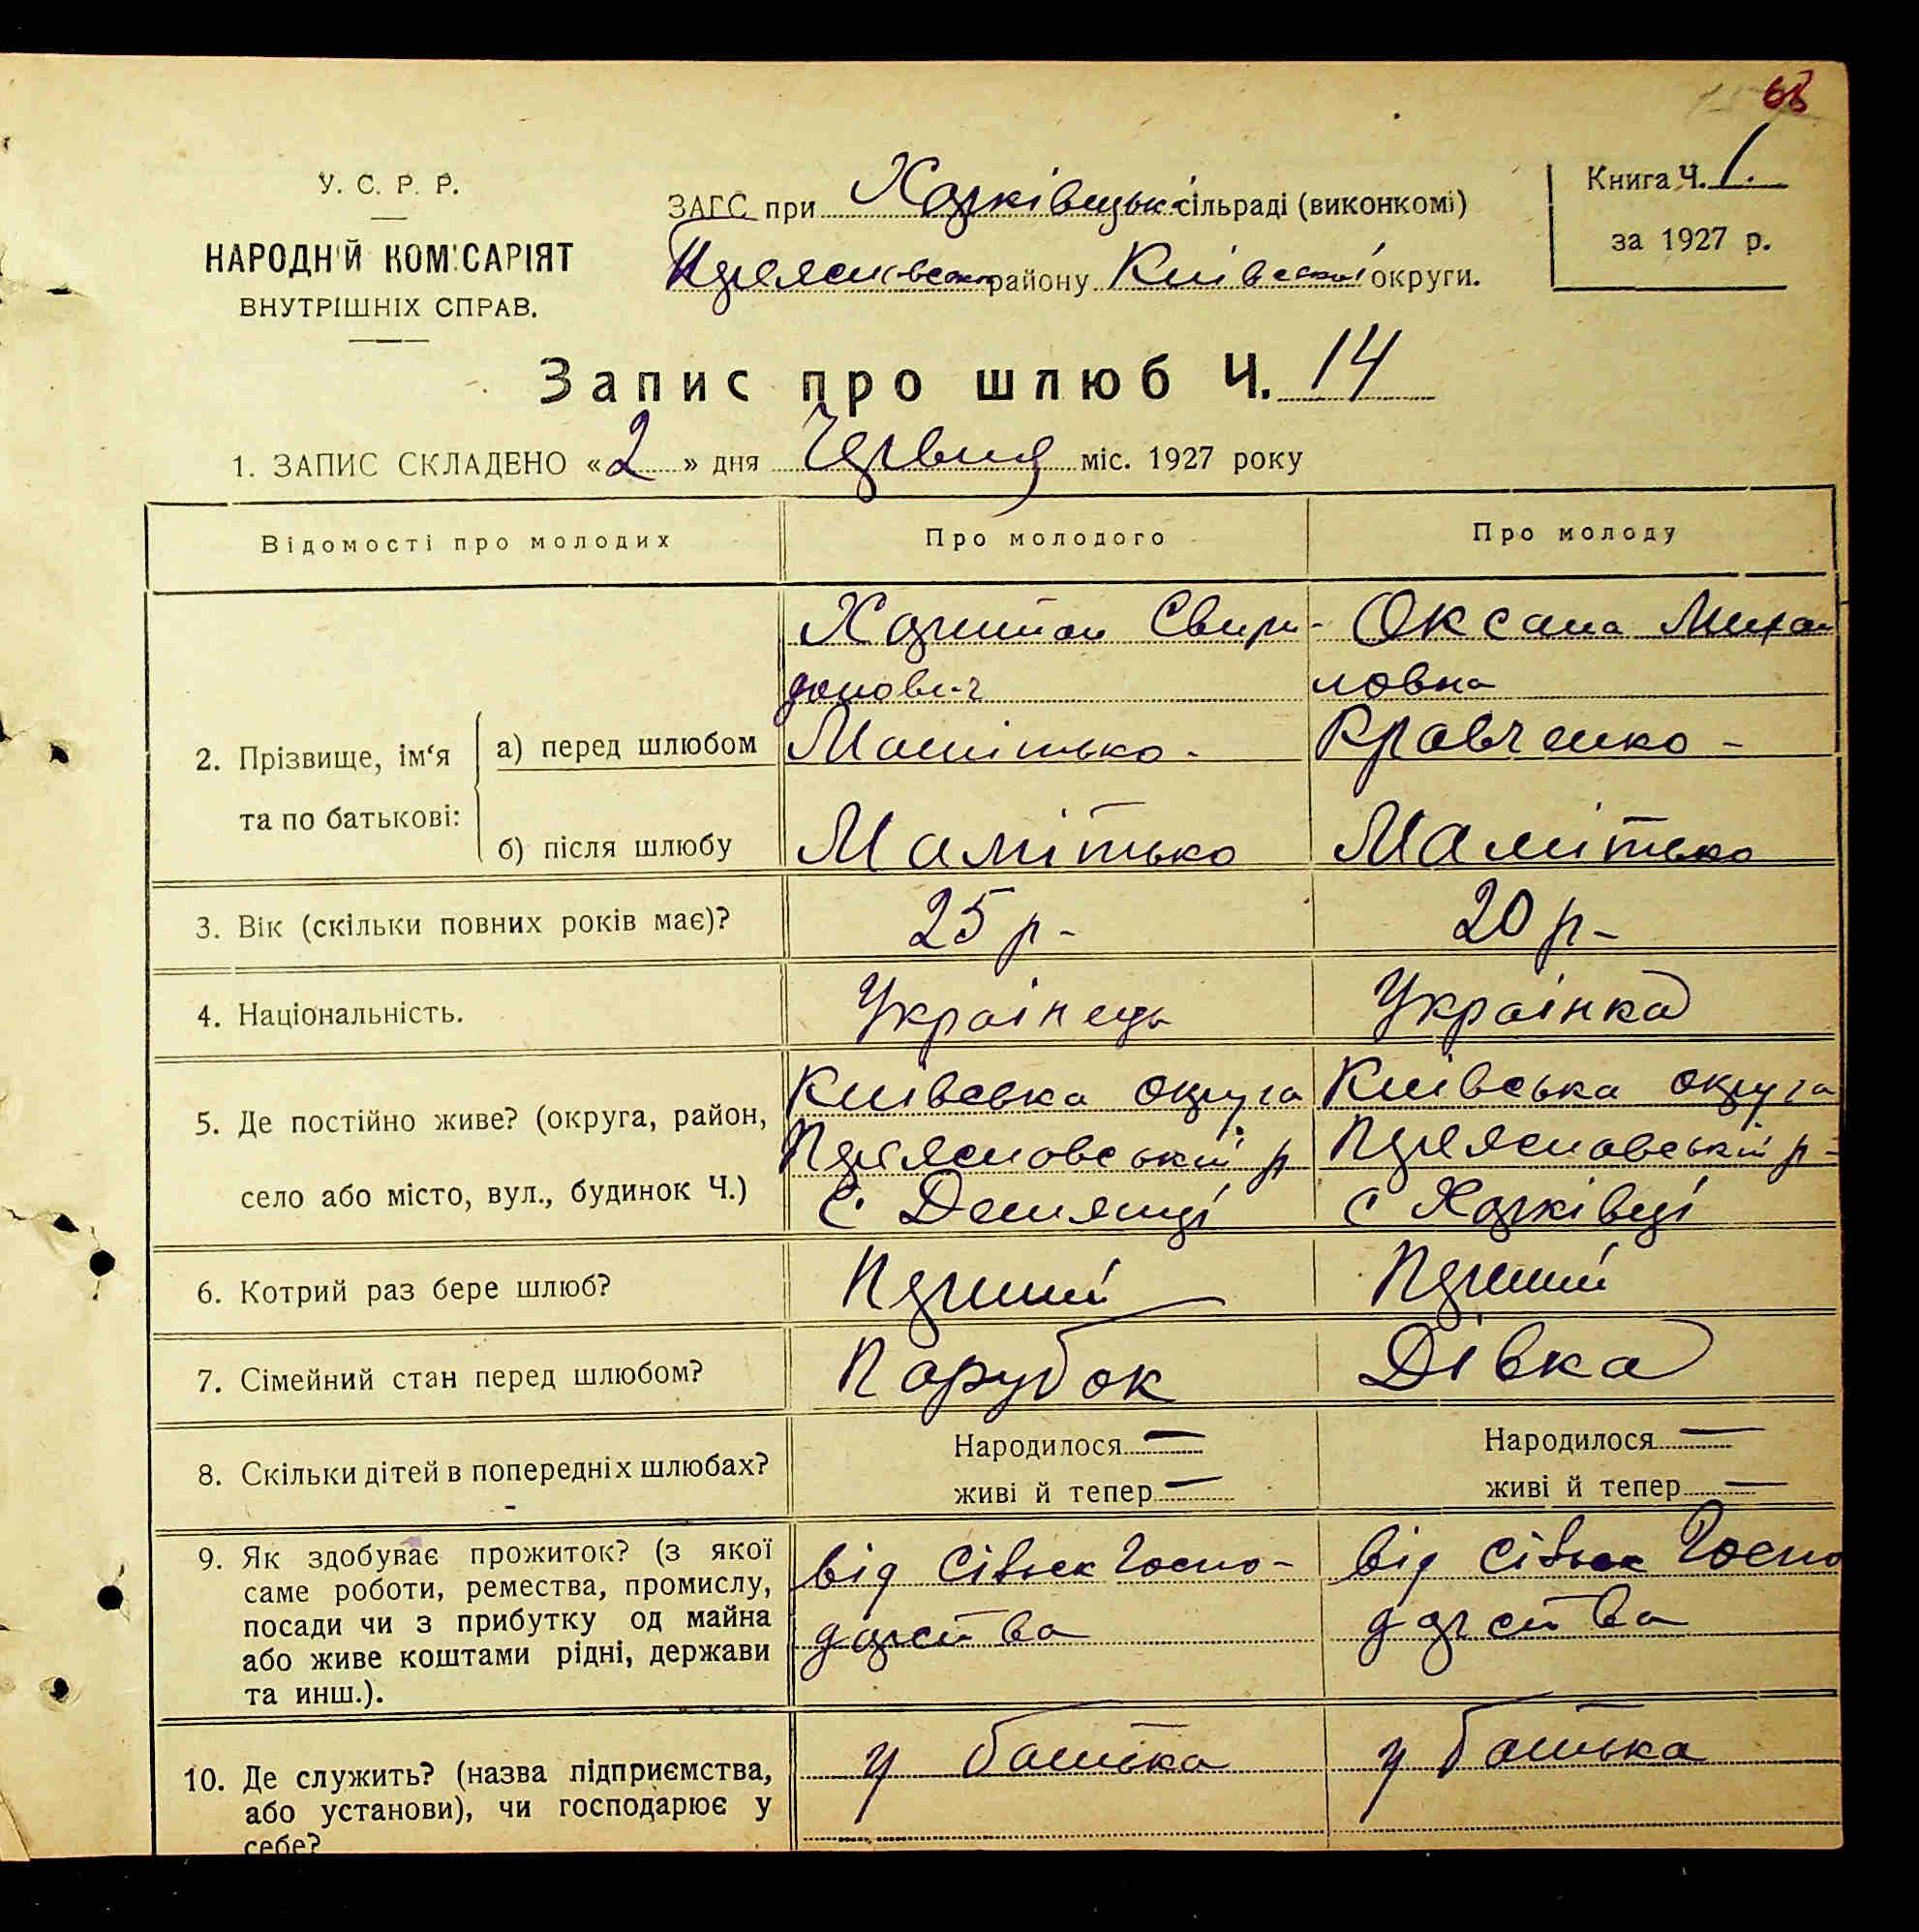 68
У. С. Р. Р.
НАРОДНІЙ КОМІСАРІЯТ
ВНУТРІШНІХ СПРАВ.
ЗАГС при Харківцьк. сільраді (виконкомі)
району Київської округи.
Книга Ч. 1.
за 1927 р.
Запис про шлюб Ч. 14
1. ЗАПИС СКЛАДЕНО «2» дня Червня міс. 1927 року
Відомості про молодих
Про молодого
Про молоду
2. Прізвище, ім‘я
та по батькові:
а) перед шлюбом
б) після шлюбу
Харитон Свири-
донович
Мамітько -
Мамітько
Оксана Михай
ловна
Кравченко -
Мамітько
3. Вік (скільки повних років має)?
25 р -
20 р -
4. Національність.
Украінець
Украінка
5. Де постійно живе? (округа, район,
село або місто, вул., будинок Ч.)
Київська округа
Переясловський р
с Демянці
Київська округа
Переясловський р -
с Харківці
6. Котрий раз бере шлюб?
Перший
Перший
7. Сімейний стан перед шлюбом?
Парубок
Дівка
8. Скільки дітей в попередніх шлюбах?
Народилося —
живі й тепер —
Народилося —
живі й тепер —
9. Як здобуває прожиток? (з якої
саме роботи, ремества, промислу,
посади чи з прибутку од майна
або живе коштами рідні, держави
та инш.).
від сільск госпо-
дарства
від сільск госпо
дарства
10. Де служить? (назва підприємства,
або установи), чи господарює у
себе?
у батька
у батька